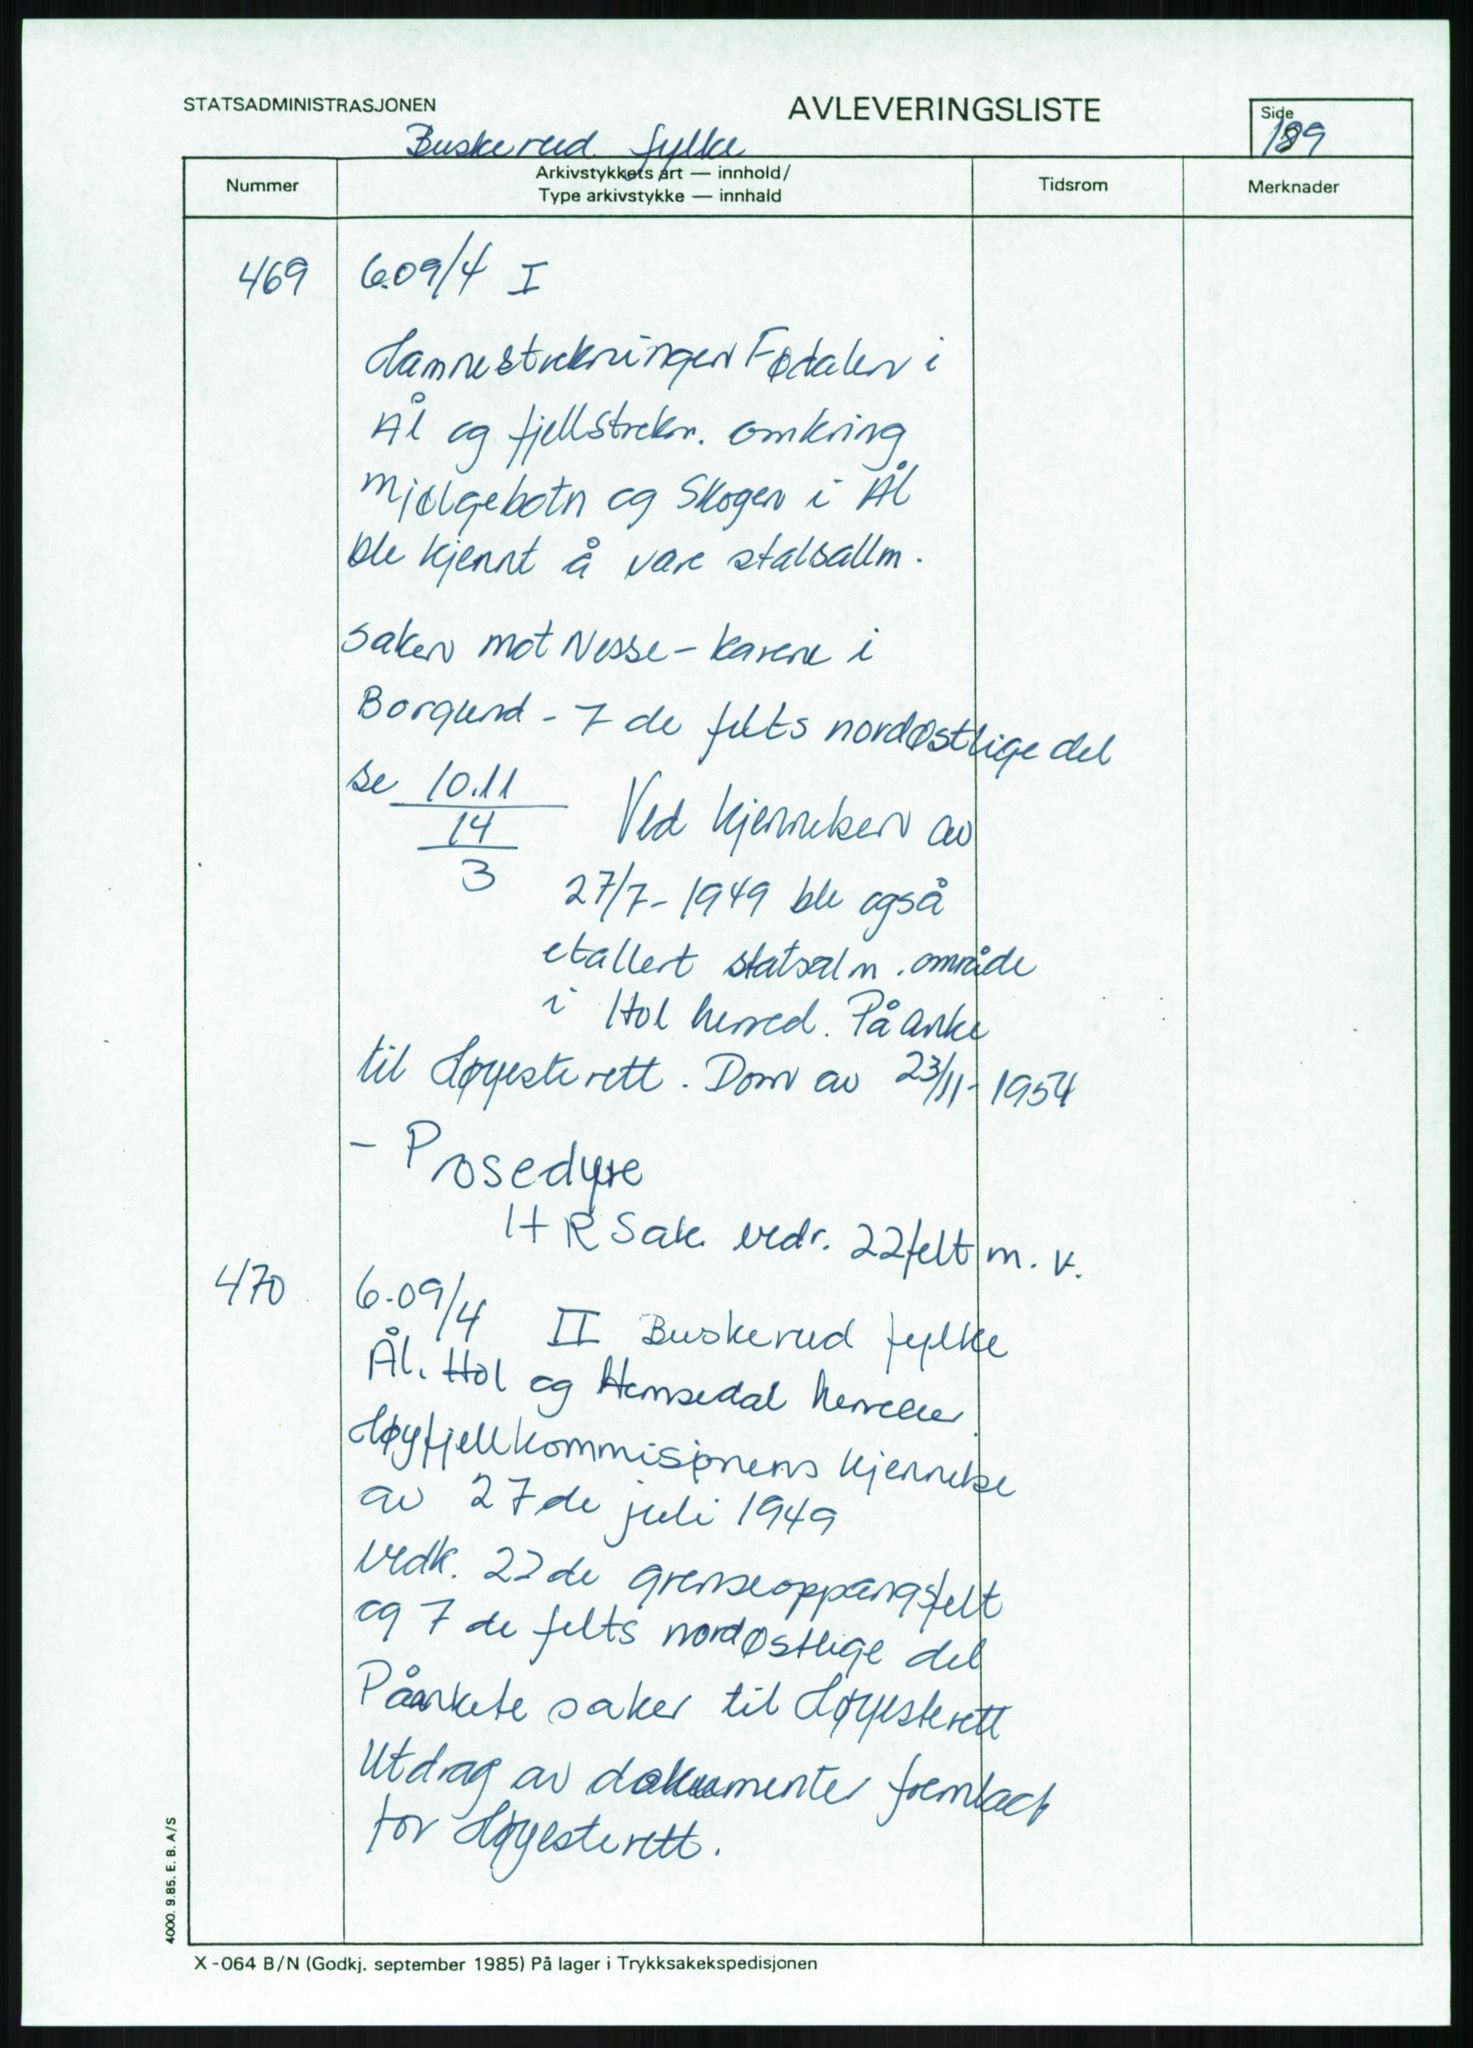 STATSADMINISTRASJONEN
AVLEVERINGSLISTE
Side
189
Buskerud fylke
Nummer
Arkivstykkets art — innhold/
Type arkivstykke — innhald
Tidsrom
Merknader
469 6.09/4 I
Hamnestrekningen Fødalen i
Ål og fjellstrekn. omkring
Mjølgebotn og Skogen i Ål
ble kjennt å være statsallm.
Saken mot Nesse-karene i
Borgund - 7de felts nordøstlige del
se 10.11
14
3
Ved kjennelsen av
27/7-1949 ble også
etallert statsalm. område
i Hol herred. På anke
til Høyesterett. Dom av 23/11-1954
- Prosedyre
HR Sak vedr. 22felt m. v.
470 6.09/4 II Buskerud fylke
Ål. Hol og Hemsedal herreder.
Høyfjellkommisjonens kjennelse
av 27de juli 1949
vedk. 22de grenseoppgangsfelt
og 7de felts nordøstlige del
Påankete saker til Høyesterett
Utdrag av dokumenter fremlagt
for Høyesterett.
4000. 9.85. E. B. A/S
X-064 B/N (Godkj. september 1985) På lager i Trykksakekspedisjonen